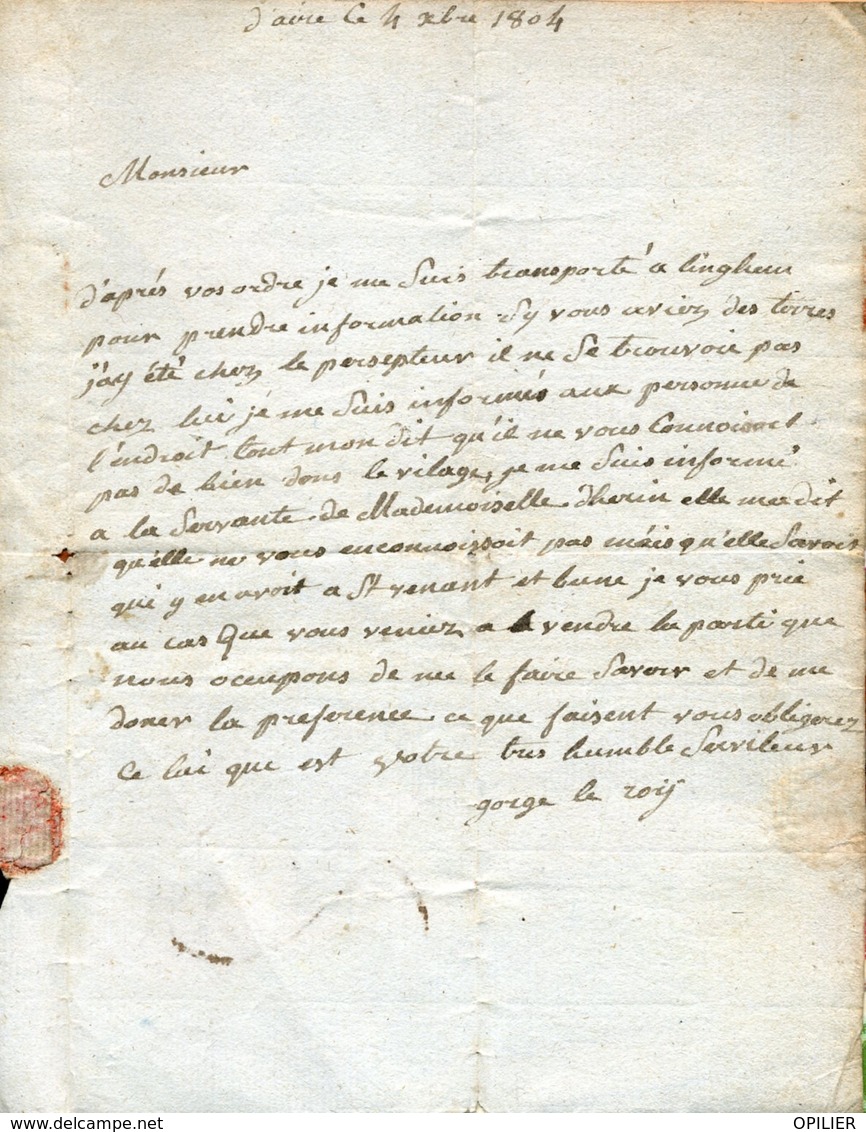 d'aire Ce 4 xbre 1804
Monsieur
d'aprés vos ordre je me Suis transporté a linghem
pour prendre information Sy vous aviez des terres
j'ay été chez le persepteur il ne Se trouvoie pas
chez lui je me Suis informés aux personne de
l'endroit tout mon dit qu'il ne vous Connoisoit
pas de bien dans le vilage, je me Suis informé
a la Servante de Mademoiselle dherin elle ma dit
qu'elle ne vous enconnoissoit pas mais qu'elle Savoit
qui y en avoit a St venant et bune je vous prie
au cas Que vous veniez a vendre la parti que
nous occupons de me le faire Savoir et de me
doner la preference ce que faisent vous obligerez
Ce lui que est votre tres humble Serviteur
gorge le roij
delcampe.net
OPILIER